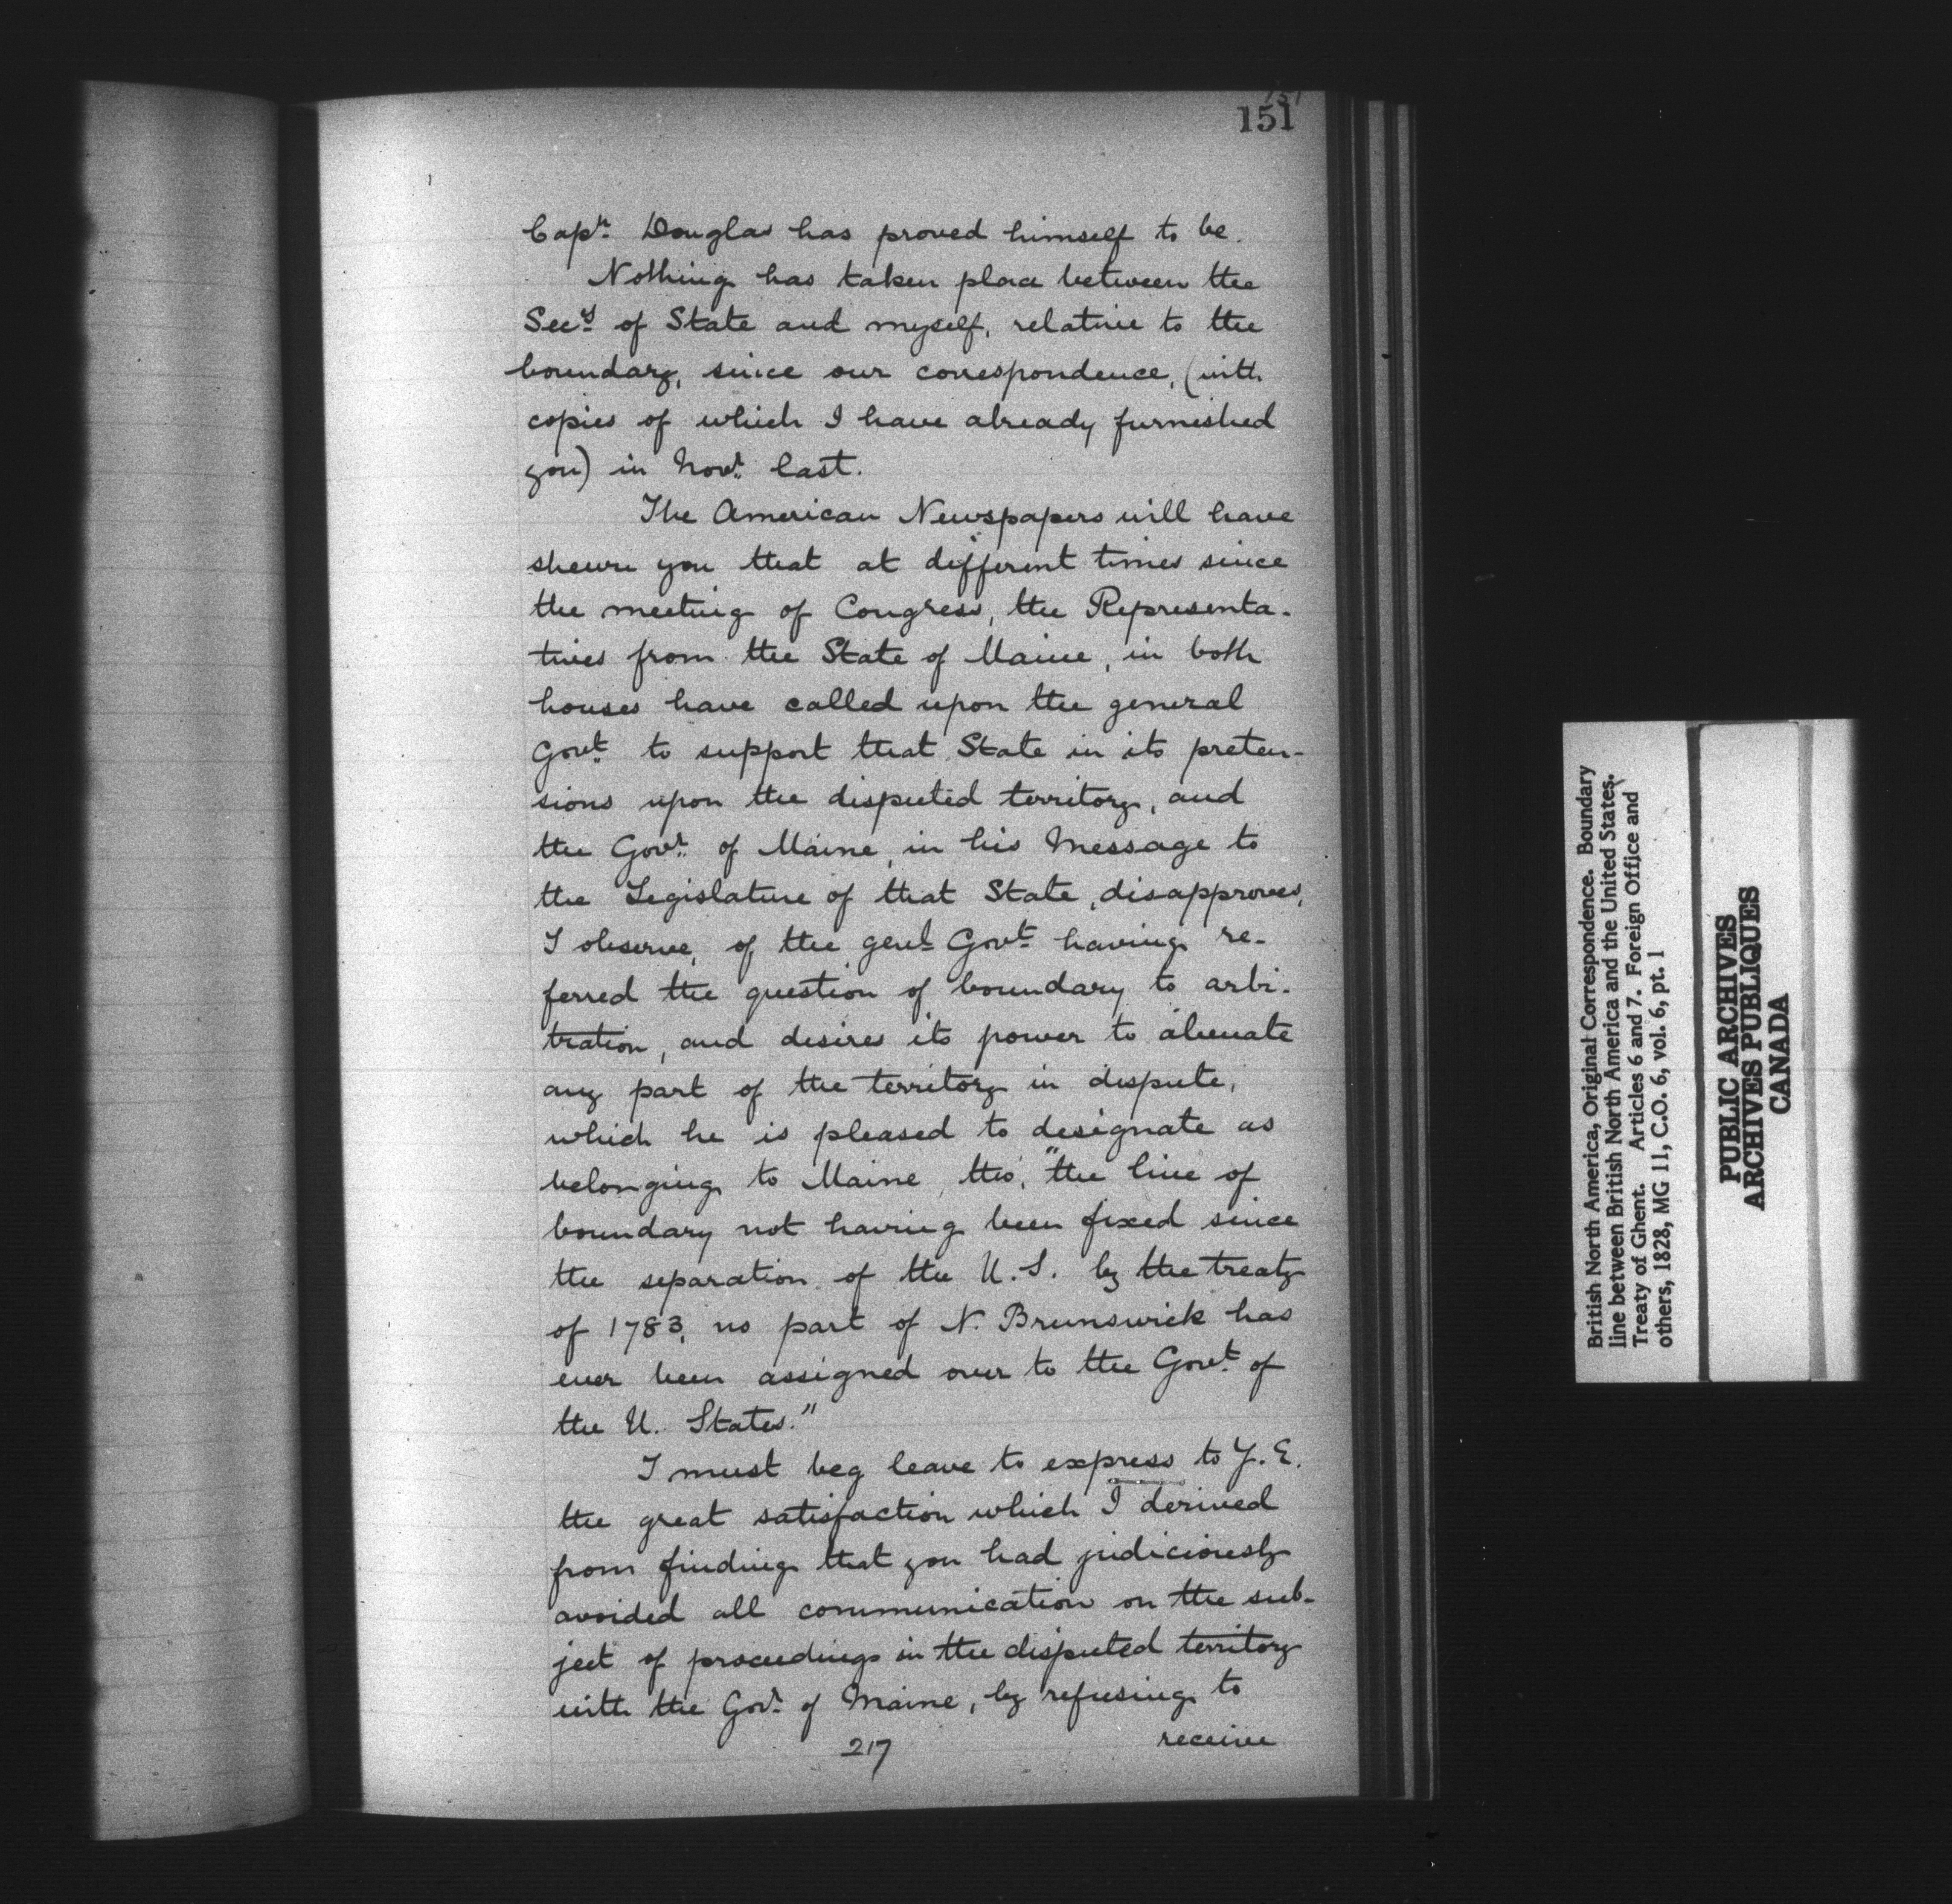 151
151
Capn. Douglas has proved himself to be.
Nothing has taken place between the
Secy. of State and myself, relative to the
boundary, since our correspondence, (with
copies of which I have already furnished
you) in Novr. last.
The American Newspapers will have
shewn you that at different times since
the meeting of Congress, the Representa-
tives from the State of Maine, in both
houses have called upon the general
Govt. to support that State in its preten-
sions upon the disputed territory, and
the Govr. of Maine, in his Message to
the Legislature of that State, disapproves,
I observe, of the genl. Govt. having re-
ferred the question of boundary to arbi-
tration, and desires its power to alienate
any part of the territory in dispute,
which he is pleased to designate as
belonging to Maine, tho, "the line of
boundary not having been fixed since
the separation of the U.S. by the treaty
of 1783, no part of N. Brunswick has
ever been assigned over to the Govt. of
the U. States."
I must beg leave to express to Y.E.
the great satisfaction which I derived
from finding that you had judiciously
avoided all communication on the sub-
ject of proceedings in the disputed territory
with the Govr. of Maine, by refusing to
217
receive
British North America, Original Correspondence. Boundary
line between British North America and the United States.
Treaty of Ghent. Articles 6 and 7. Foreign Office and
others, 1828, MG 11, C.O. 6, vol. 6, pt. 1
PUBLIC ARCHIVES
ARCHIVES PUBLIQUES
CANADA